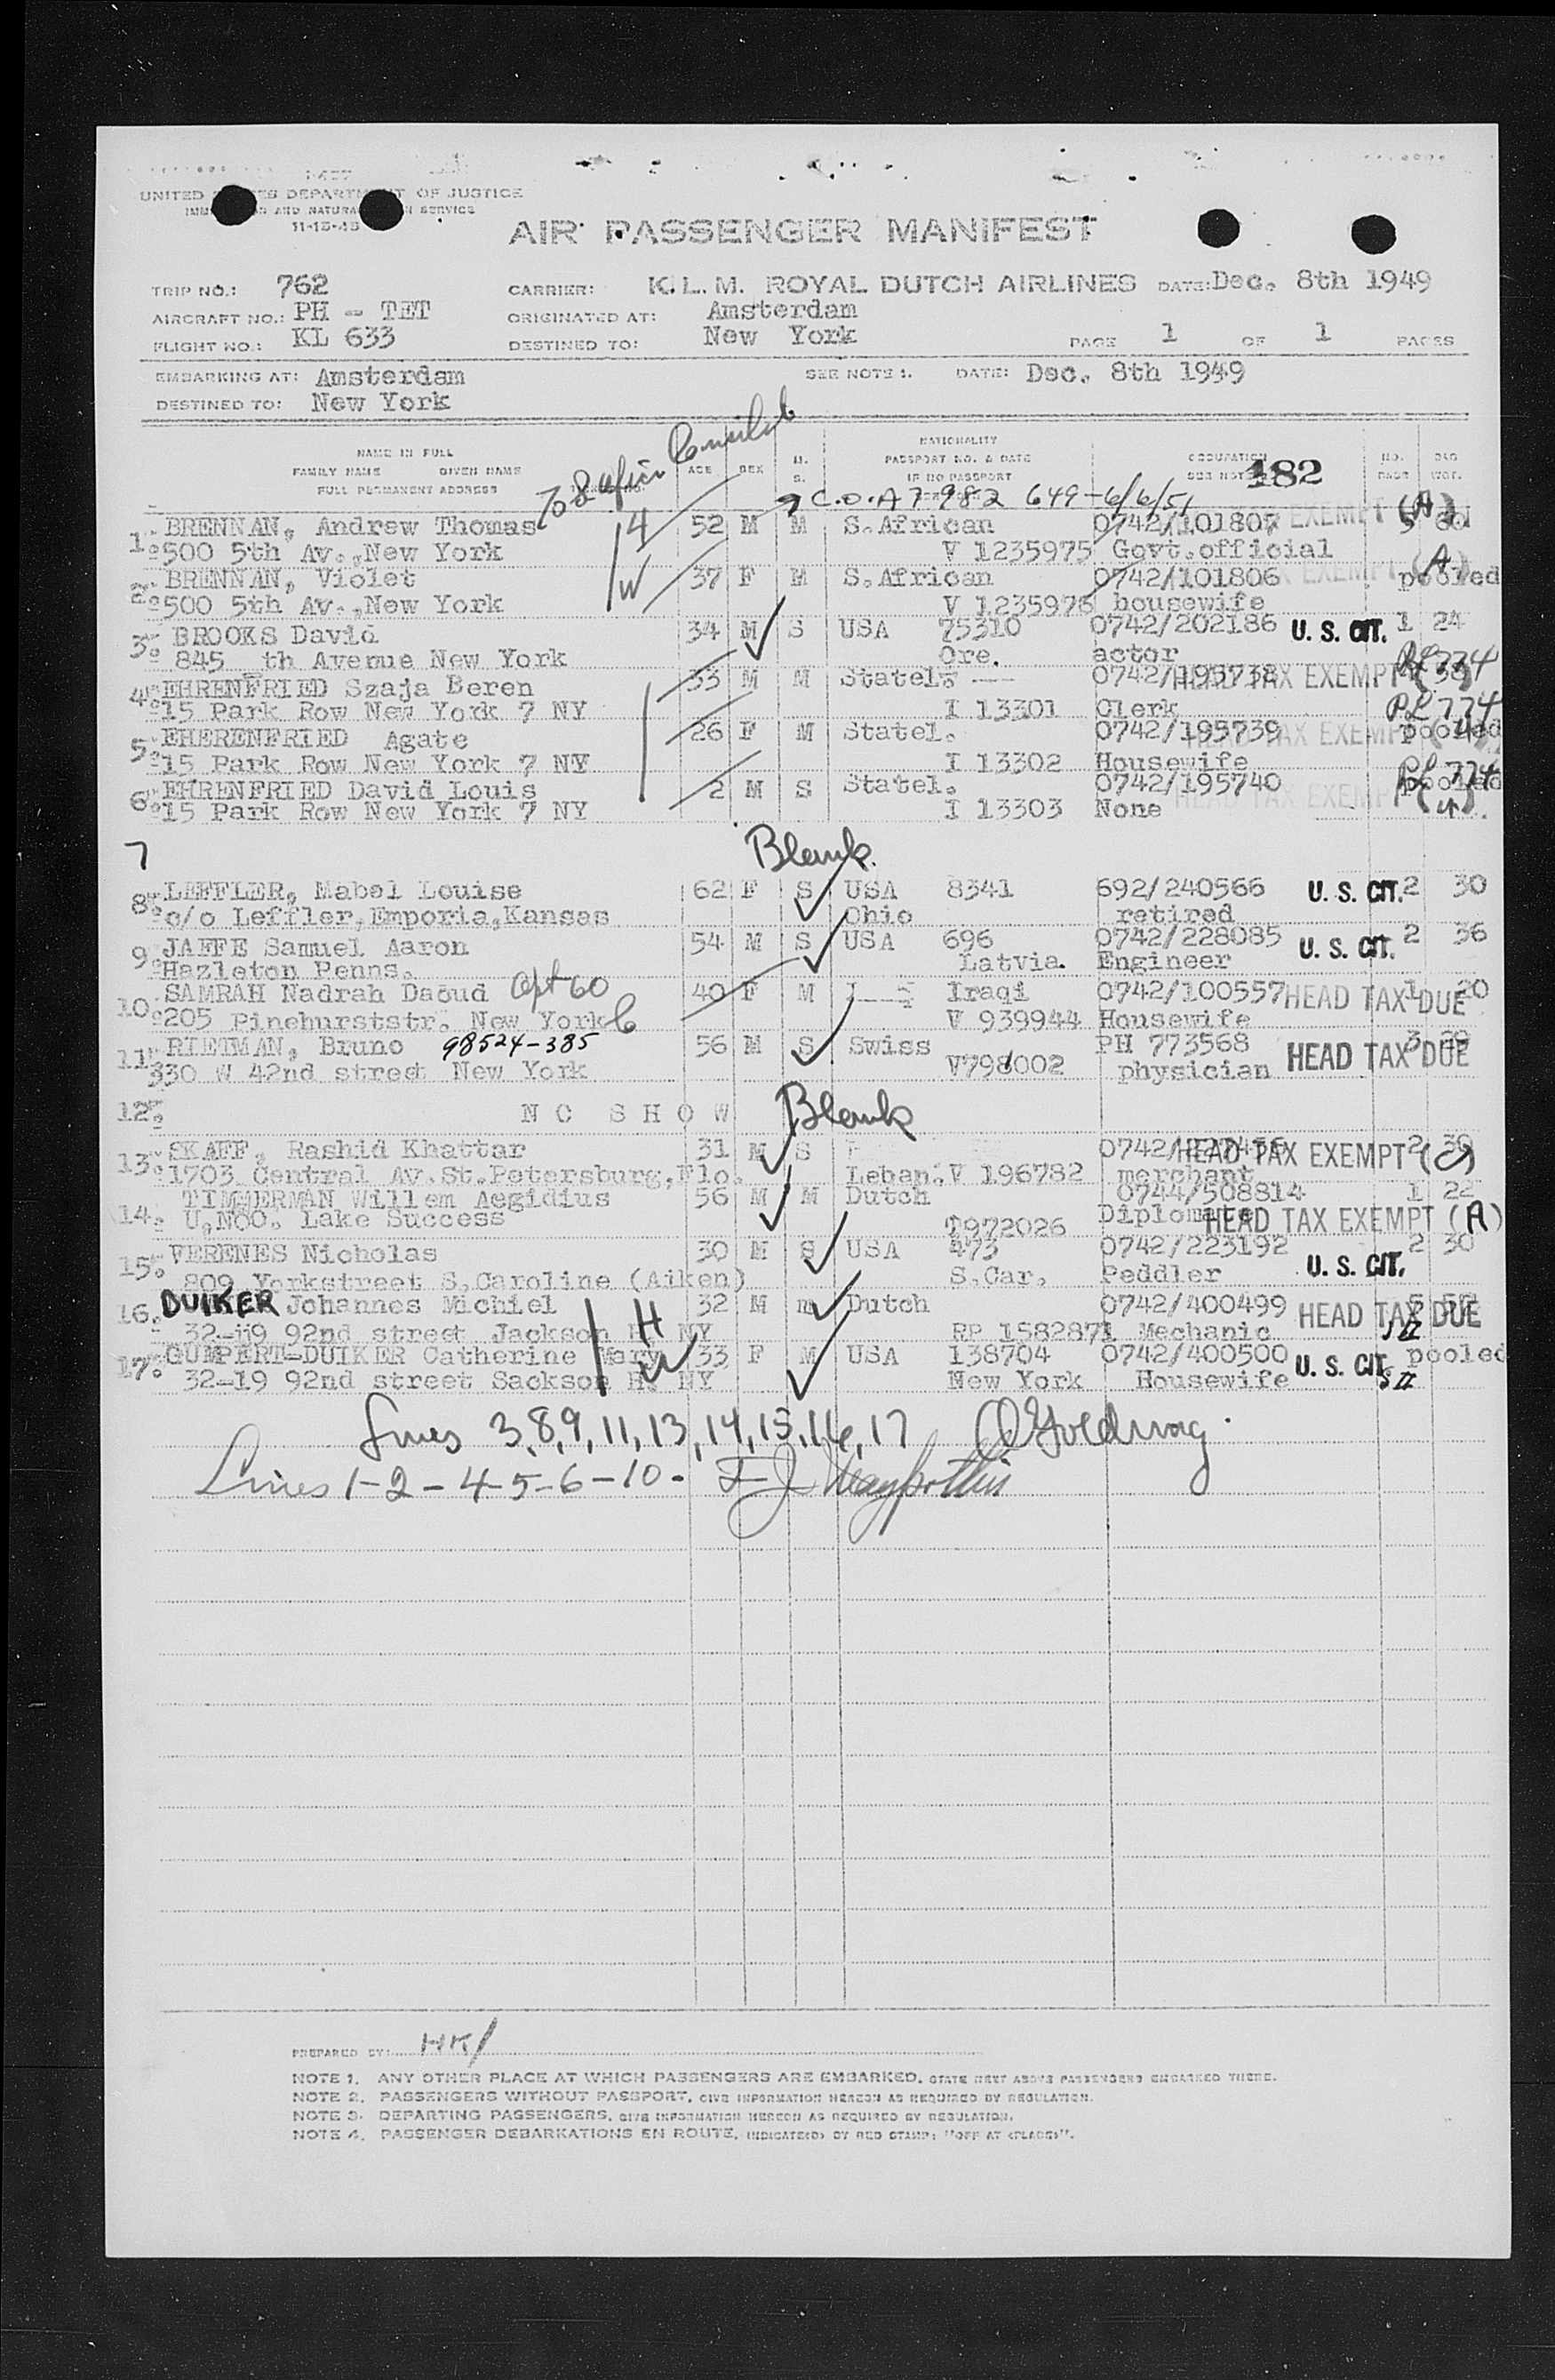 UNITED STATES DEPARTMENT OF JUSTICE
11-15-45
AIR PASSENGER MANIFEST
TRIP NO.: 762 CARRIER: K.L.M. ROYAL DUTCH AIRLINES DATE: Dec. 8th 1949
AIRCRAFT NO.: PH - TET ORIGINATED AT: Amsterdam
FLIGHT NO.: KL 633 DESTINED TO: New York PAGE 1 OF 1 PAGES
EMBARKING AT: Amsterdam SEE NOTE 1. DATE: Dec. 8th 1949
DESTINED TO: New York
NAME IN FULL NATIONALITY
FAMILY NAME GIVEN NAME AGE SEX M. S. PASSPORT NO. & DATE OCCUPATION
FULL PERMANENT ADDRESS IF NO PASSPORT 482
C.O. A7 982 649-6/6/51
1. BRENNAN, Andrew Thomas H 52 M M S.African 0742/101807 EXEMPT (A)
500 5th Av.,New York V 1235975 Govt.official
2. BRENNAN, Violet W 37 F M S.African 0742/101806 EXEMPT (A) pooled
500 5th Av.,New York V 1235976 housewife
3. BROOKS David 34 M S USA 75310 0742/202186 U. S. CIT. 1 24
845 th Avenue New York Ore. actor
4. EHRENFRIED Szaja Beren 33 M M Statel. --- 0742/195738 HEAD TAX EXEMPT PL 774
15 Park Row New York 7 NY I 13301 Clerk
5. EHERENFRIED Agate 26 F M Statel. 0742/195739 HEAD TAX EXEMPT PL 774 pooled
15 Park Row New York 7 NY I 13302 Housewife
6. EHRENFRIED David Louis 2 M S Statel. 0742/195740 HEAD TAX EXEMPT PL 774 pooled
15 Park Row New York 7 NY I 13303 None
7 Blank.
8. LEFFLER, Mabel Louise 62 F S USA 8341 692/240566 U. S. CIT. 2 30
c/o Leffler,Emporia,Kansas Ohio retired
9. JAFFE Samuel Aaron 54 M S USA 696 0742/228085 U. S. CIT. 2 36
Hazleton Penns. Latvia. Engineer
10. SAMRAH Nadrah Daoud apt 60 40 F M Iraqi 0742/100557 HEAD TAX DUE 1 20
205 Pinehurststr. New York V 939944 Housewife
11. RIETMAN, Bruno 98524-385 56 M S Swiss PH 773568 HEAD TAX DUE
330 W 42nd street New York V798002 physician
12. NO SHOW Blank
13. SKAFF, Rashid Khattar 31 M S HEAD TAX EXEMPT 2 30
1703 Central Av.St.Petersburg,Flo. Leban. V 196782 merchant
14. TIMMERMAN Willem Aegidius 56 M M Dutch 0744/508814 1 22
U,NOO. Lake Success T972026 Diplomate HEAD TAX EXEMPT (A)
15. VERENES Nicholas 30 M S USA 473 0742/223192 U. S. CIT. 2 30
809 Yorkstreet S,Caroline (Aiken) S.Car. Peddler
16. DUIKER Johannes Michiel H 32 M m Dutch 0742/400499 HEAD TAX DUE
32-19 92nd street Jackson H. NY RP 1582871 Mechanic
17. GUMPERT-DUIKER Catherine Mary W 33 F M USA 138704 0742/400500 U. S. CIT. pooled
32-19 92nd street Sackson H. NY New York Housewife
Lines 3,8,9,11,13,14,15,16,17
Lines 1-2-4-5-6-10.
PREPARED BY: HK/
NOTE 1. ANY OTHER PLACE AT WHICH PASSENGERS ARE EMBARKED, STATE NEXT ABOVE PASSENGERS EMBARKED THERE.
NOTE 2. PASSENGERS WITHOUT PASSPORT, GIVE INFORMATION HEREON AS REQUIRED BY REGULATION.
NOTE 3. DEPARTING PASSENGERS, GIVE INFORMATION HEREON AS REQUIRED BY REGULATION.
NOTE 4. PASSENGER DEBARKATIONS EN ROUTE, INDICATE(D) BY RED STAMP: "OFF AT (PLACE)".